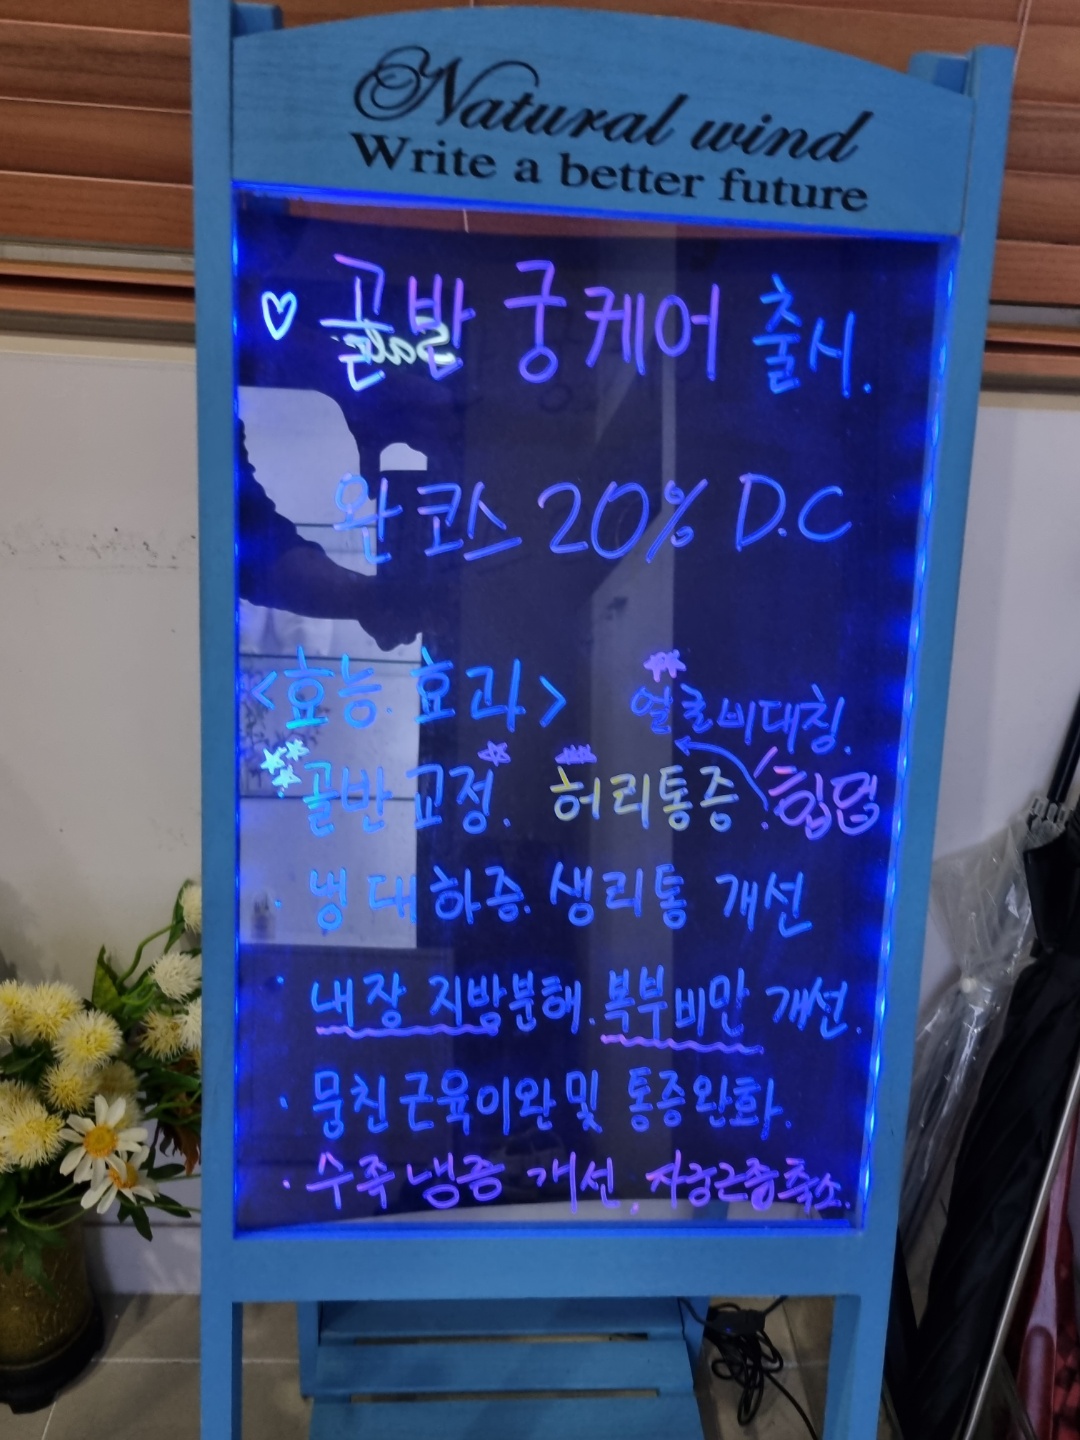 Natural wind
Write a better future
♡ 골반 궁케어 출시.
완코스 20% D.C
<효능.효과> 얼굴비대칭.
골반교정. 허리통증. 힙업
· 냉대하증. 생리통 개선
· 내장 지방분해. 복부비만 개선.
· 뭉친근육이완및 통증완화.
· 수족냉증 개선, 자궁근종축소.